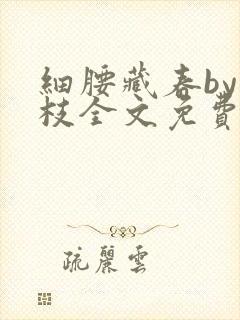 細腰藏春by
枝全文免費
疏麗雲